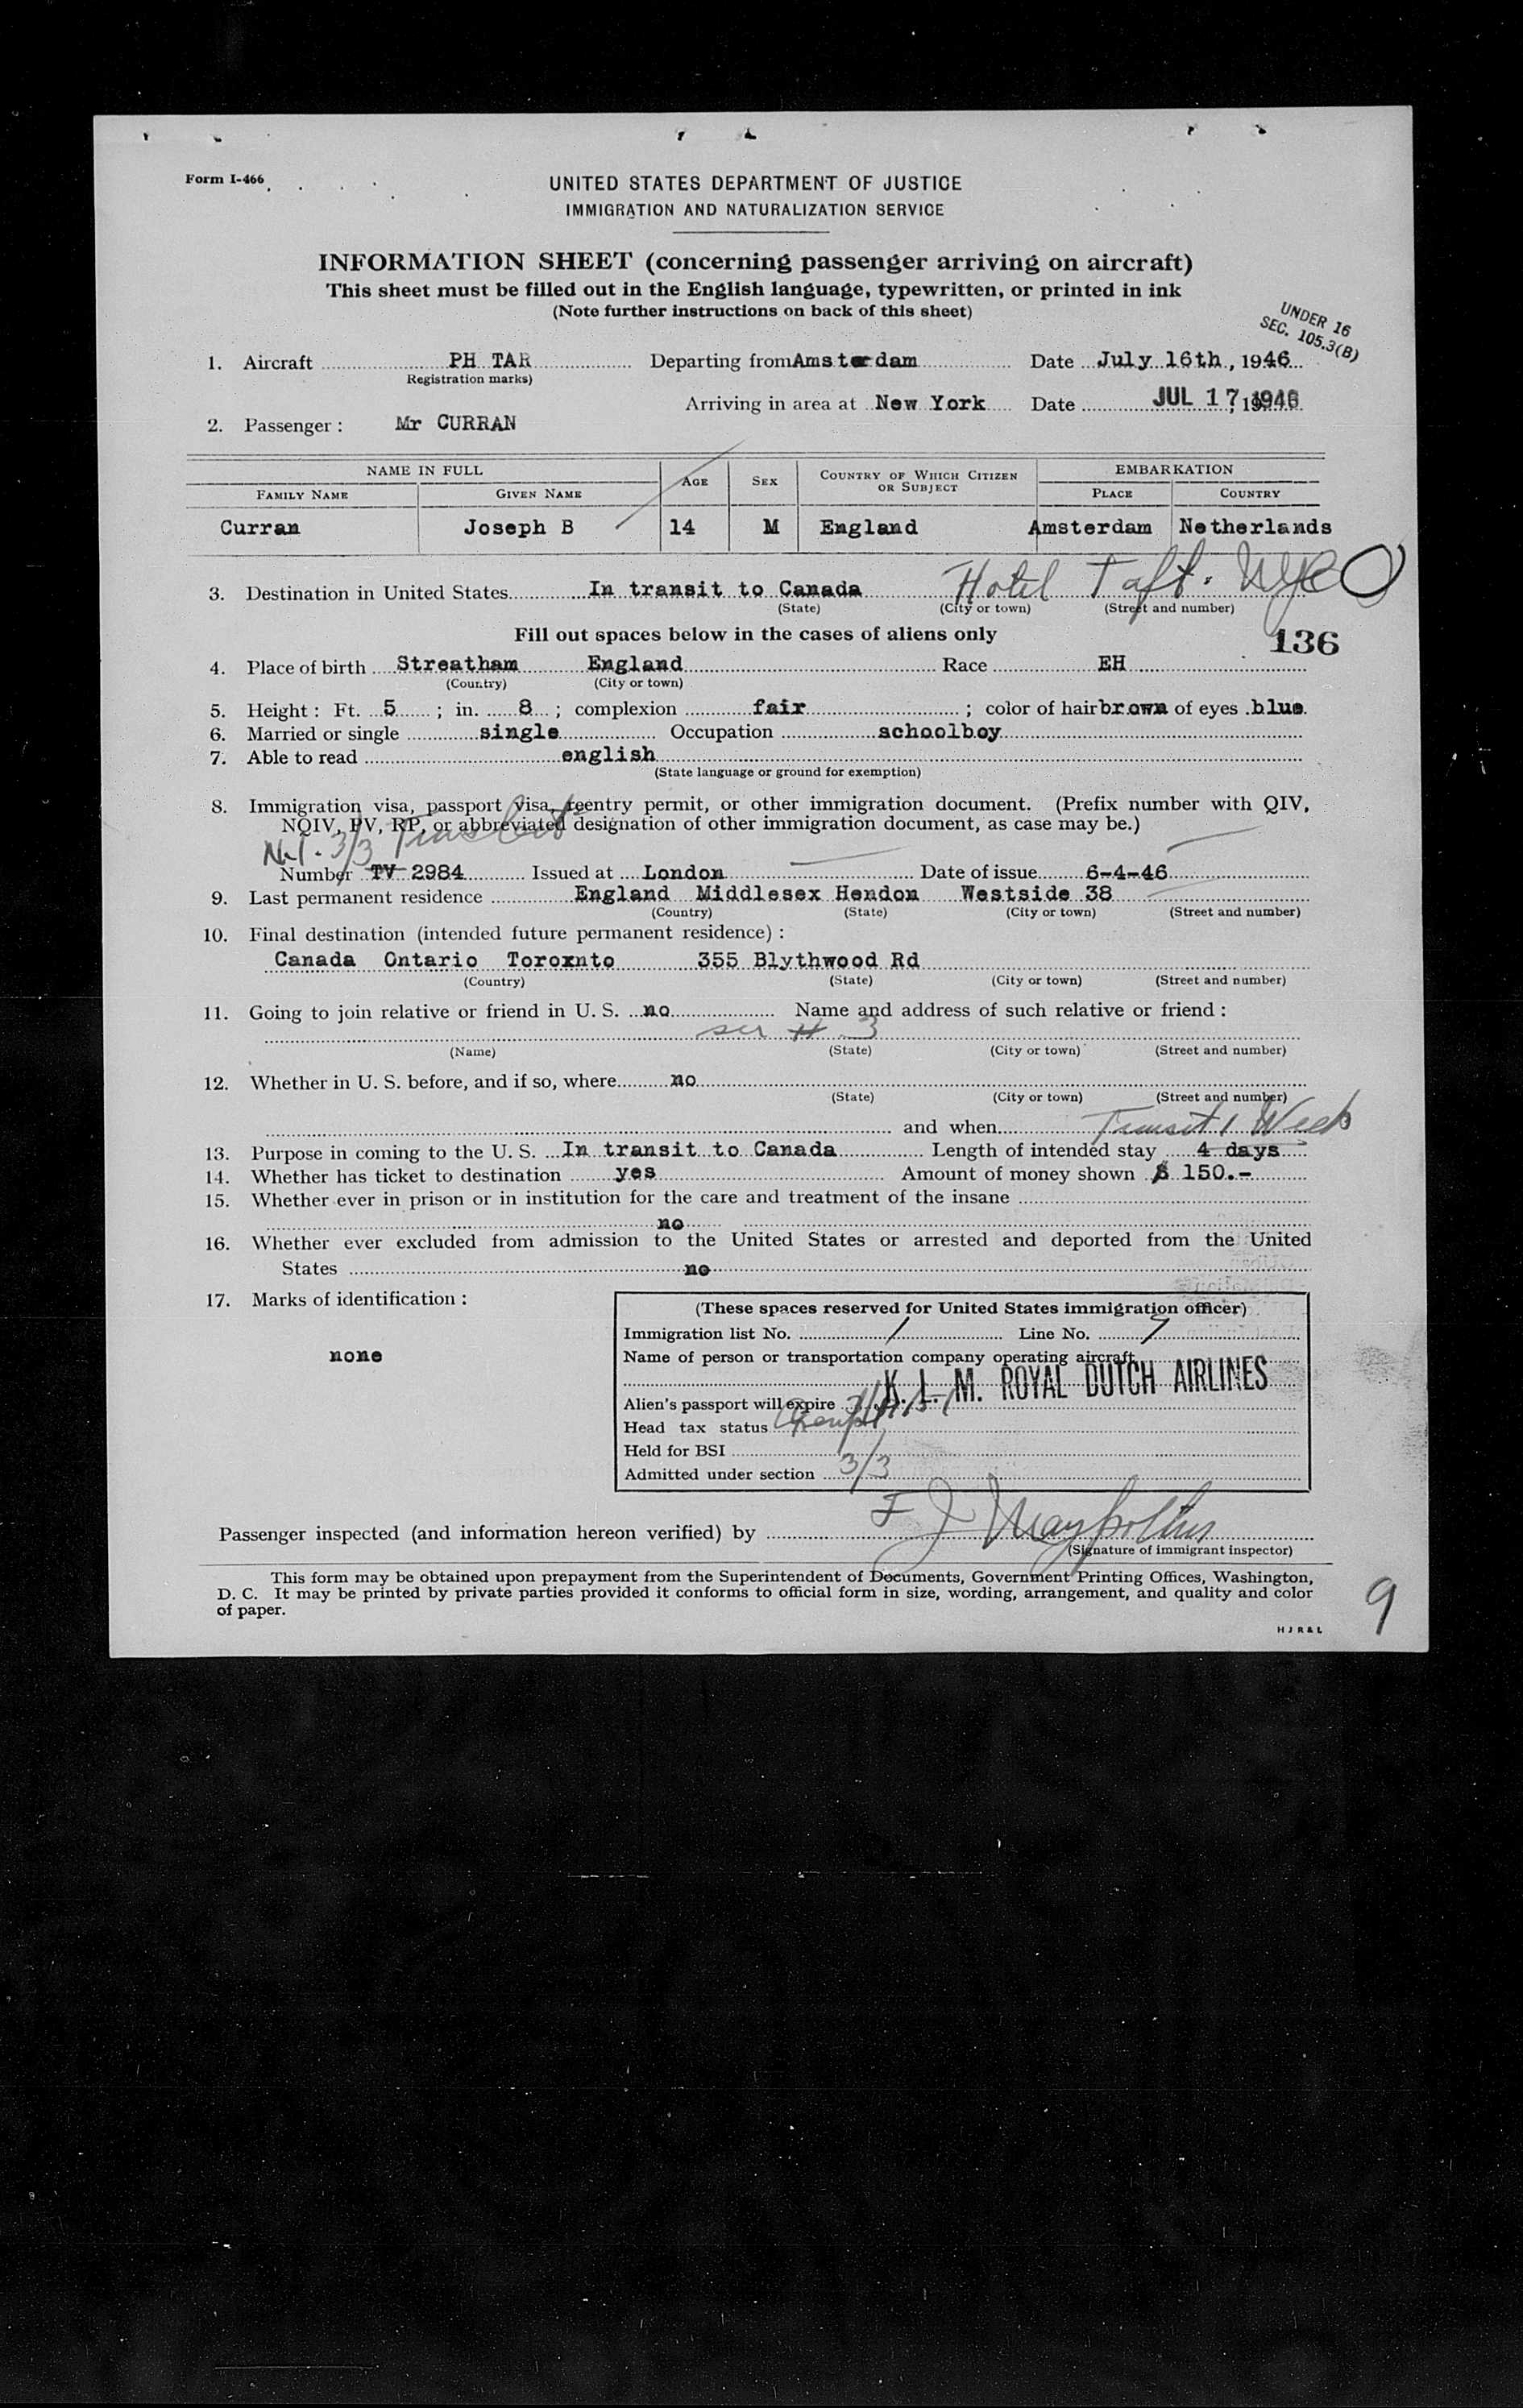 Form I-466
UNITED STATES DEPARTMENT OF JUSTICE
IMMIGRATION AND NATURALIZATION SERVICE
INFORMATION SHEET (concerning passenger arriving on aircraft)
This sheet must be filled out in the English language, typewritten, or printed in ink
(Note further instructions on back of this sheet)
UNDER 16
SEC. 105.3(B)
1. Aircraft PH TAR Departing from Amsterdam Date July 16th, 1946
(Registration marks)
Arriving in area at New York Date JUL 17 1946
2. Passenger: Mr CURRAN
NAME IN FULL AGE SEX COUNTRY OF WHICH CITIZEN OR SUBJECT EMBARKATION
FAMILY NAME GIVEN NAME PLACE COUNTRY
Curran Joseph B 14 M England Amsterdam Netherlands
3. Destination in United States In transit to Canada Hotel Taft. NYC
(State) (City or town) (Street and number)
Fill out spaces below in the cases of aliens only
136
4. Place of birth Streatham England Race EH
(Country) (City or town)
5. Height: Ft. 5; in. 8; complexion fair; color of hair brown of eyes blue
6. Married or single single Occupation schoolboy
7. Able to read english
(State language or ground for exemption)
8. Immigration visa, passport visa, reentry permit, or other immigration document. (Prefix number with QIV,
NQIV, PV, RP, or abbreviated designation of other immigration document, as case may be.)
3/3
Number TV 2984 Issued at London Date of issue 6-4-46
9. Last permanent residence England Middlesex Hendon Westside 38
(Country) (State) (City or town) (Street and number)
10. Final destination (intended future permanent residence):
Canada Ontario Toroxnto 355 Blythwood Rd
(Country) (State) (City or town) (Street and number)
11. Going to join relative or friend in U. S. no Name and address of such relative or friend:
see # 3
(Name) (State) (City or town) (Street and number)
12. Whether in U. S. before, and if so, where no
(State) (City or town) (Street and number)
and when Transit 1 Week
13. Purpose in coming to the U. S. In transit to Canada Length of intended stay 4 days
14. Whether has ticket to destination yes Amount of money shown $ 150.-
15. Whether ever in prison or in institution for the care and treatment of the insane
no
16. Whether ever excluded from admission to the United States or arrested and deported from the United
States no
17. Marks of identification:
none
(These spaces reserved for United States immigration officer)
Immigration list No. 1 Line No. 7
Name of person or transportation company operating aircraft
K. L. M. ROYAL DUTCH AIRLINES
Alien's passport will expire
Head tax status Exempt
Held for BSI
Admitted under section 3/3
Passenger inspected (and information hereon verified) by
(Signature of immigrant inspector)
This form may be obtained upon prepayment from the Superintendent of Documents, Government Printing Offices, Washington,
D. C. It may be printed by private parties provided it conforms to official form in size, wording, arrangement, and quality and color
of paper.
H J R & L
9